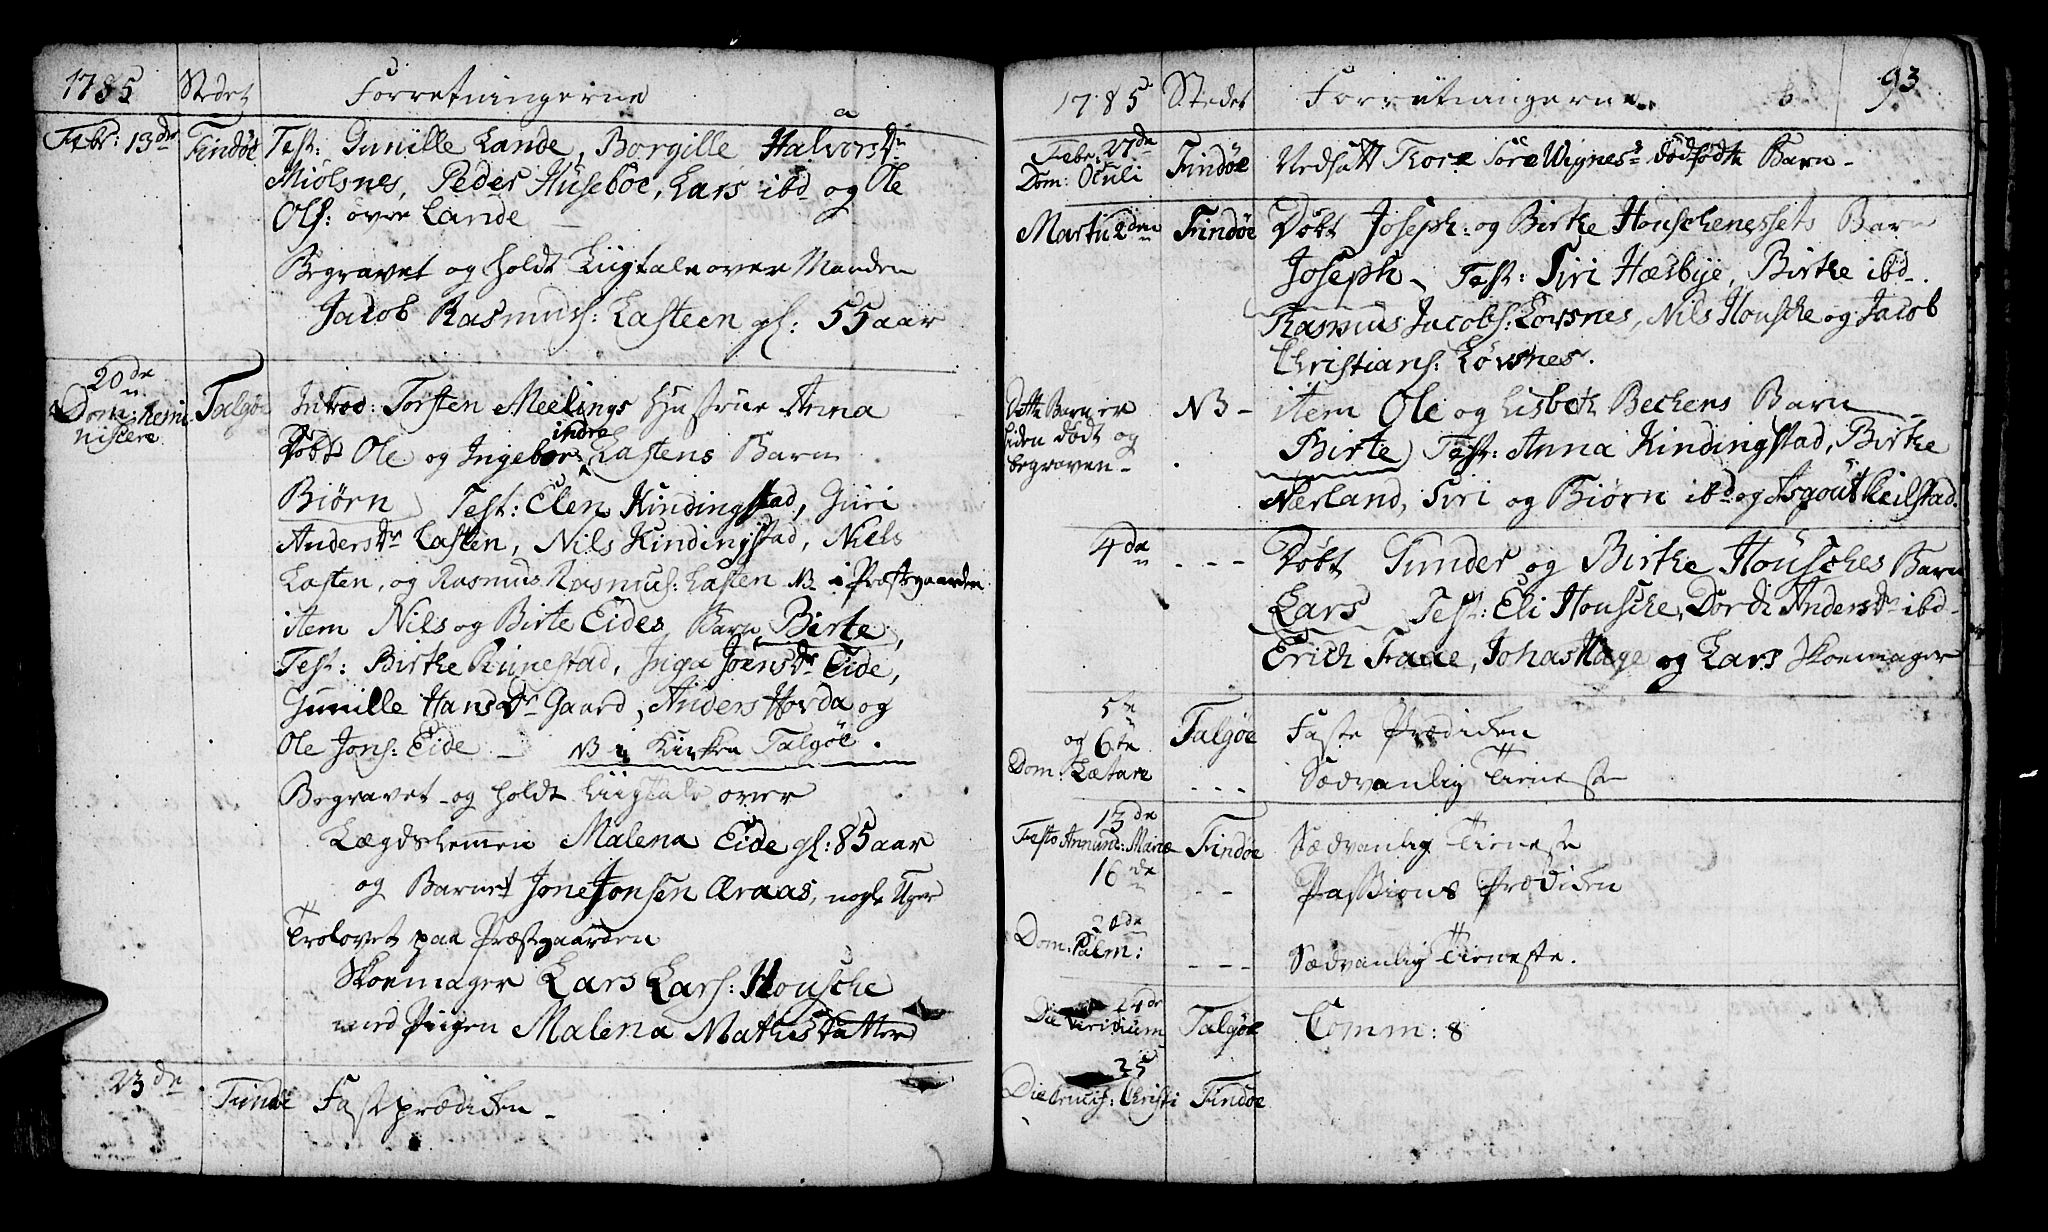 1785 Stedet Forretningerne
a
Febr: 13de Findøe Test: Gunille Lande, Borgille HalvorsDr
Miølsnes, Peder Husebøe, Lars ibd og Ole
Ols: øvre Lande
Begravet og holdt Liigtale over Manden
Jacob Rasmuss: Lasteen gl: 55 aar
20de
Dom: Remi
niscere Talgøe Introd: Torsten Meelings Hustrue Anna
indre
Døbt Ole og Ingebor Lastens Barn
Biørn Test: Elen Kindingstad, Guri
AndersDr Lasten, Nils Kindingstad, Niels
Lasten, og Rasmus Rasmus: Lasten NB i Præstgaarden
item Nils og Birte Eides Barn Birte,
Test: Birthe Rünestad, Inga JoensDr Eide,
Gunille HansDr Gaard, Anders Horda og
Ole Jons: Eide NB i Kirken Talgøe.
Begravet og holdt Liigtale over
Lægdslemmen Malena Eide gl: 85 aar
og Barnet Jone Jonsen Æraas, nogle Uger
Trolovet paa Præstgaarden
Skoemager Lars Lars: Housche
med Pigen Malena MathisDatter
23de Findøe Fasteprædiken
1785 Stedet Forretningerne b 93
Febr: 27de
Dom: Oculi Findøe Nedsatt Tore Tore Vignes's dødfødte Barn
Martii 2den Findøe Døbt Joseph: og Birthe Houschenessets Barn
Joseph Test: Siri Hæsbye, Birthe ibd
Rasmus Jacobs: Lovsnes, Nils Housche og Jacob
Christians: Løvsnes.
Dette Barn er
siden Dødt og
begraven NB item Ole og Lisbeth Bechens Barn
Birte Test: Anna Kindingstad, Birthe
Nerland, Siri og Biørn ibd og Asgout Reilstad.
4de Døbt Gunder og Birthe Housches Barn
Lars Test: Eli Housche, Dordi AndersDr ibd
Erich Faae, Johas Hage og Lars Skoemager
5te Talgøe Faste Prædiken
og 6te
Dom: Lætare Sædvanlig Tieneste
13de
Festo Annunc: Mariæ Findøe Sædvanlig Tieneste
16de Passions Prædiken
20de
Dom: Palm: Sædvanlig Tieneste.
24de
Die Viridium Talgøe Comm: 8
25
Die Crucif: Christi Findøe